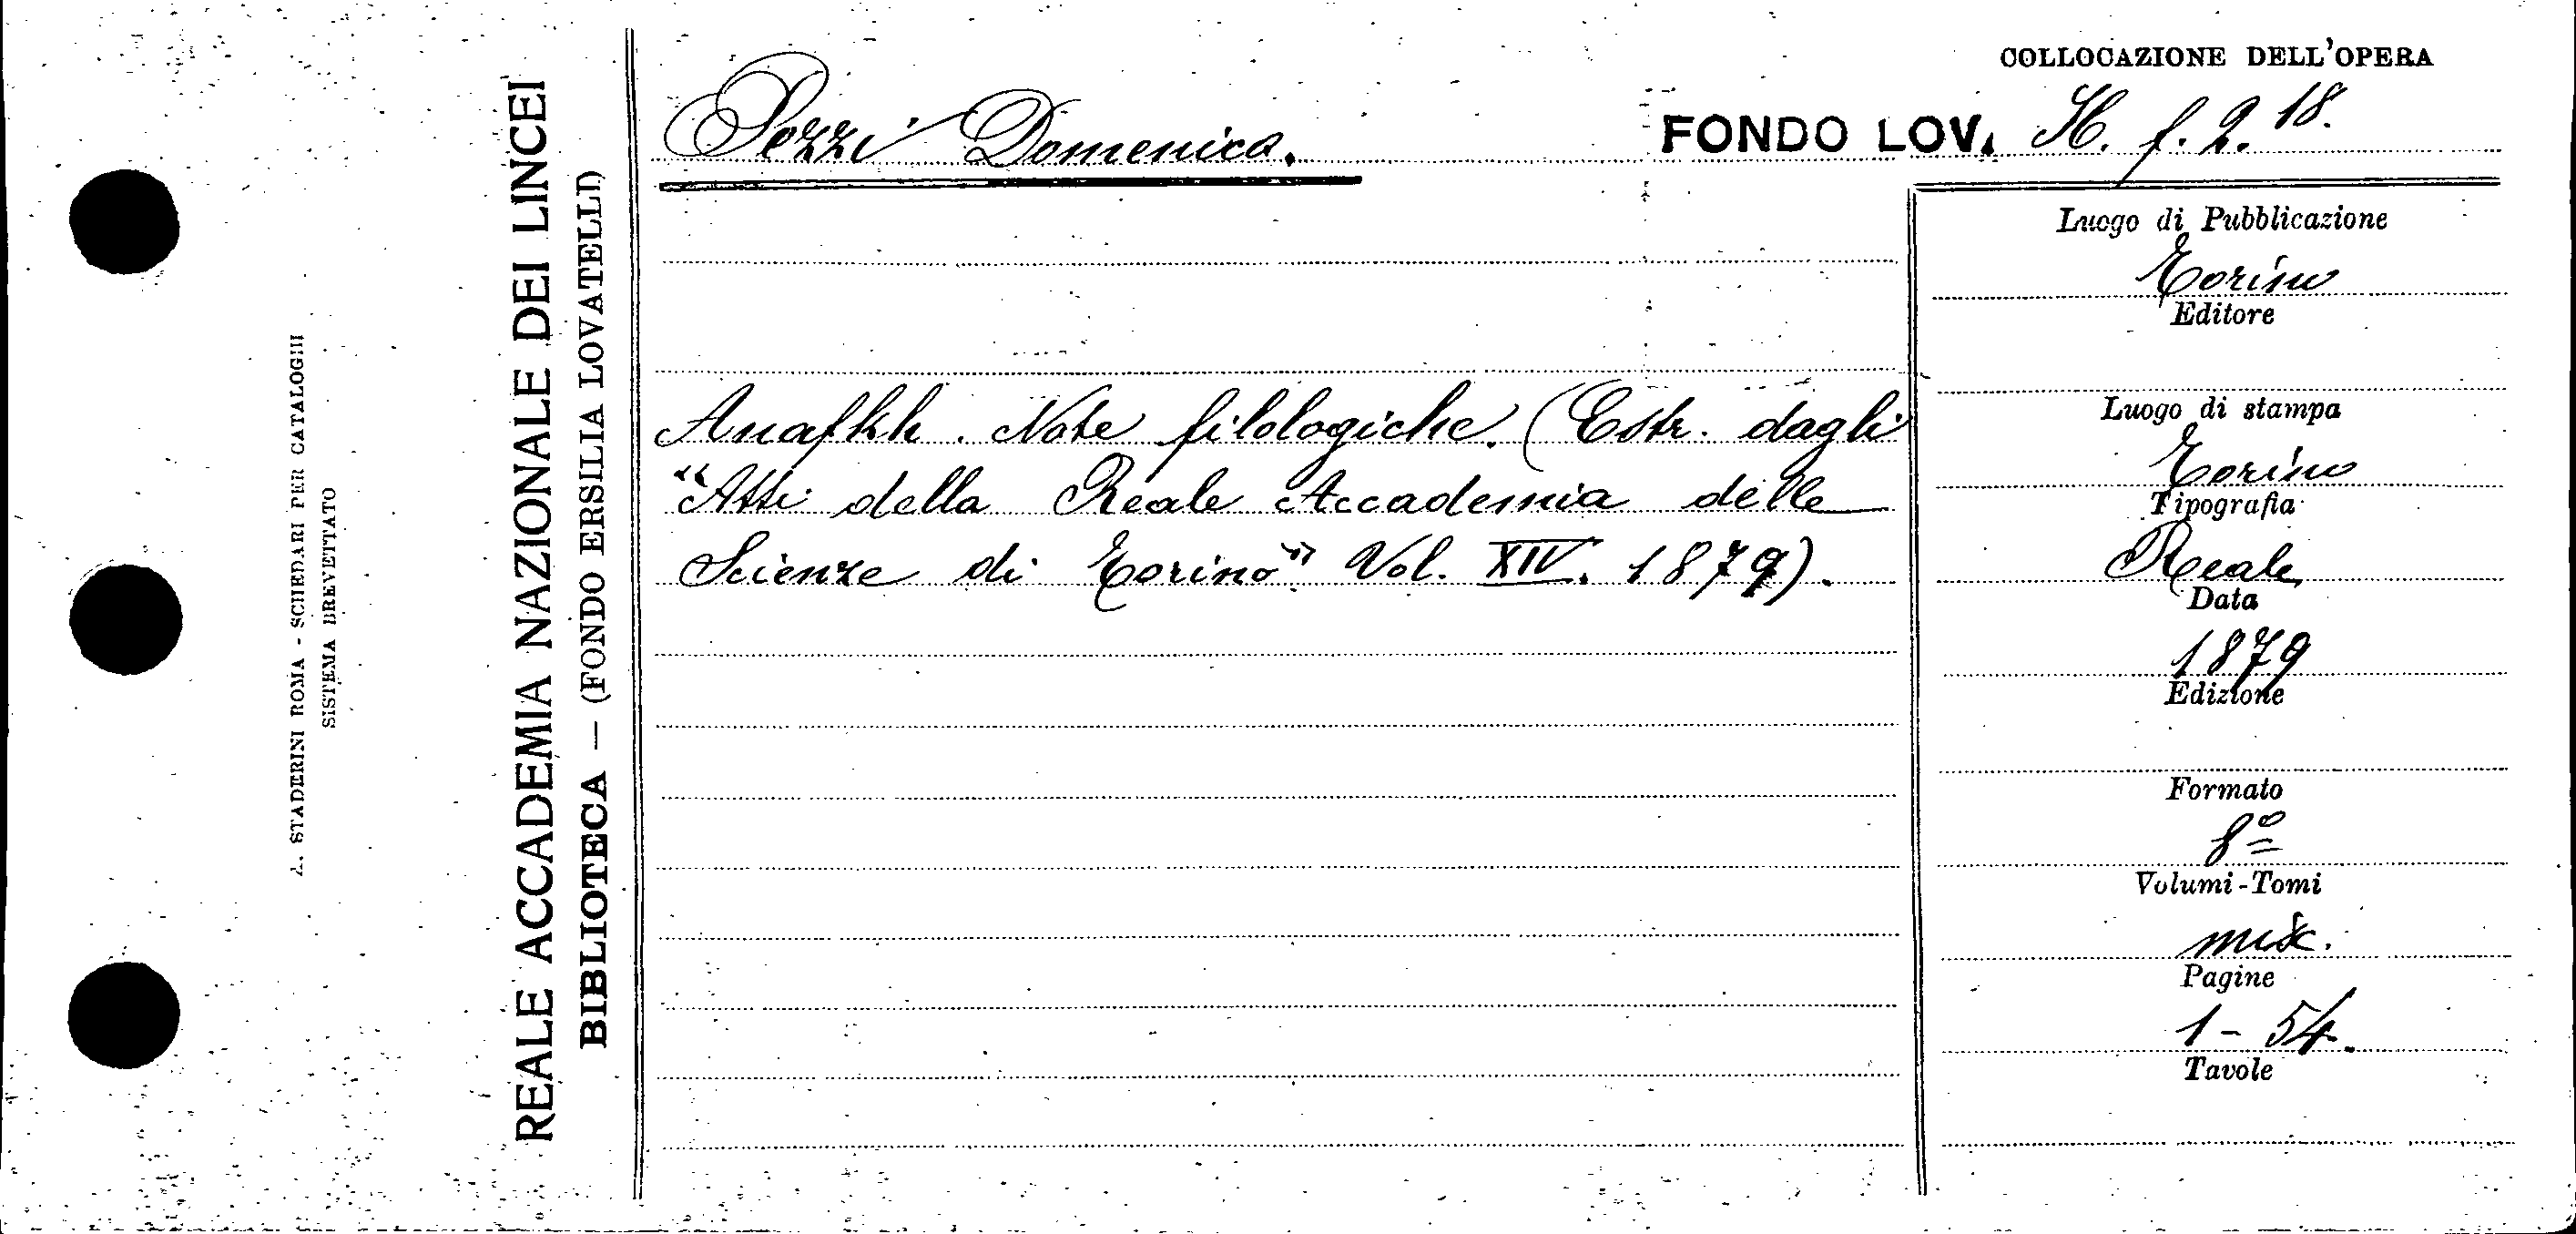 COLLOCAZIONE DELL'OPERA
Pezzi Domenico.
FONDO LOV. H. f. 2. 18.
Anafkh. Note filologiche. (Estr. dagli
"Atti della Reale Accademia delle
Scienze di Torino" Vol. XIV. 1879).
Luogo di Pubblicazione
Torino
Editore
Luogo di stampa
Torino
Tipografia
Reale
Data
1879
Edizione
Formato
8º
Volumi-Tomi
misc.
Pagine
1 - 54.
Tavole
REALE ACCADEMIA NAZIONALE DEI LINCEI
BIBLIOTECA — (FONDO ERSILIA LOVATELLI)
A. STADERINI ROMA - SCHEDARI PER CATALOGHI
SISTEMA BREVETTATO